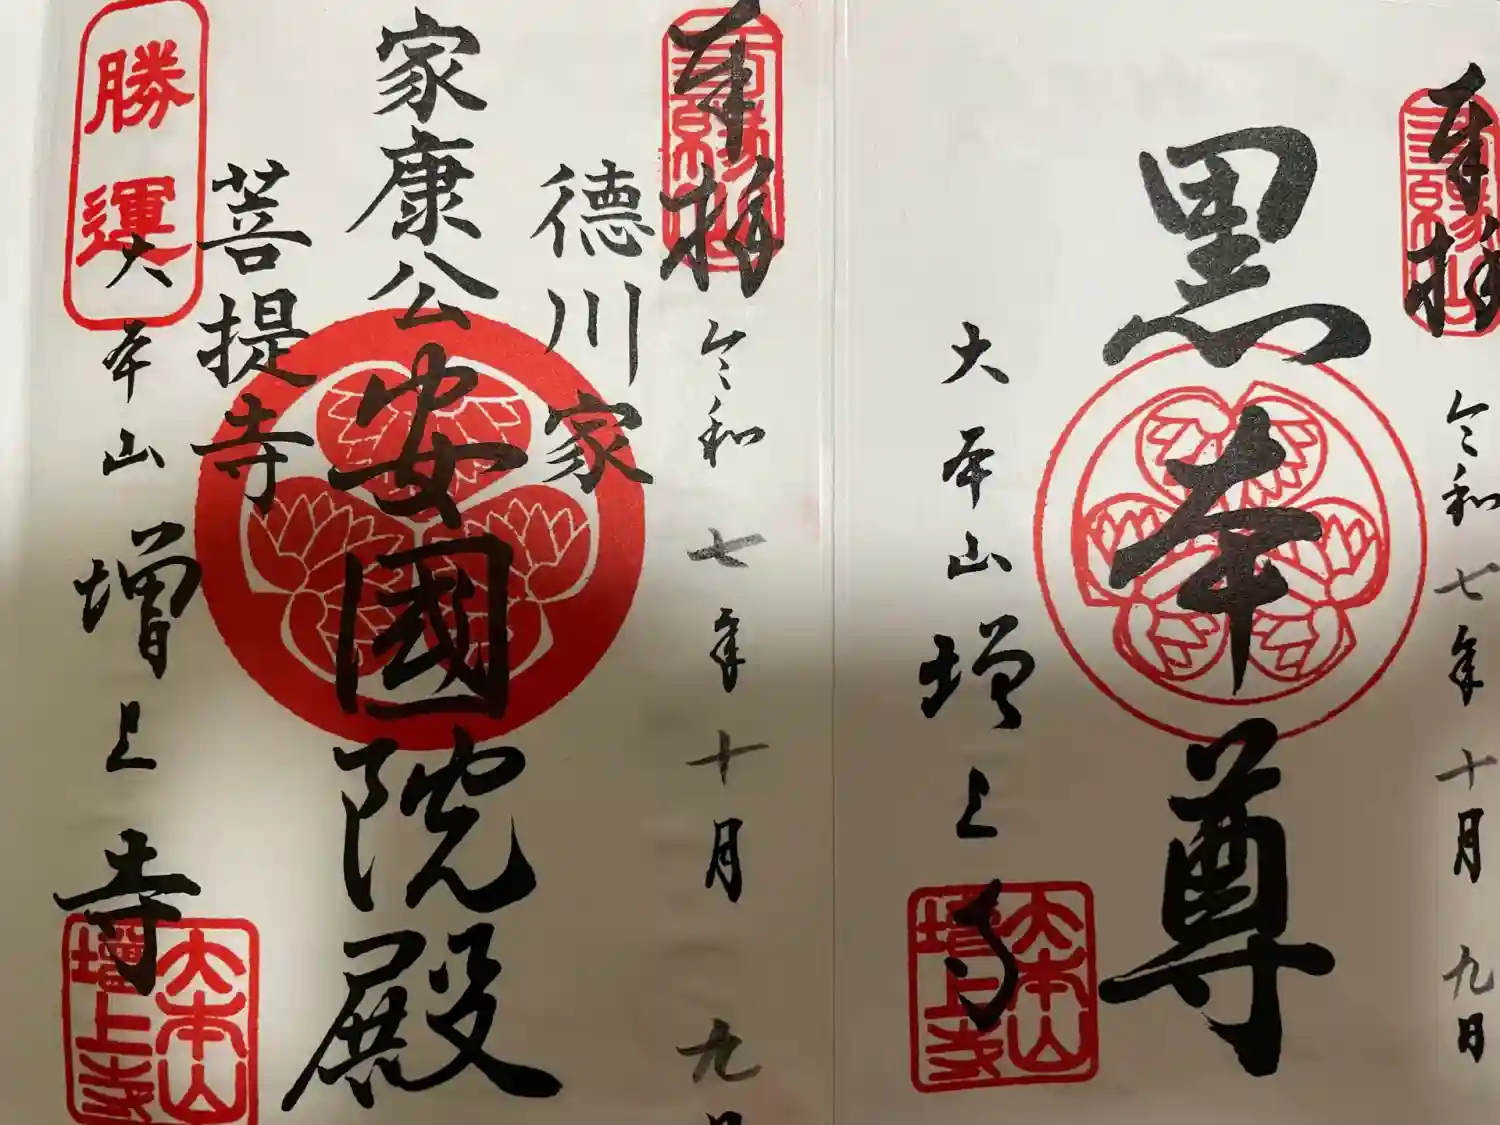 奉拝
令和七年十月九日
黒本尊
大本山増上寺
大本山
増上寺
奉拝
令和七年十月九日
徳川家
家康公安國院殿
菩提寺
勝運
大本山増上寺
大本山
増上寺